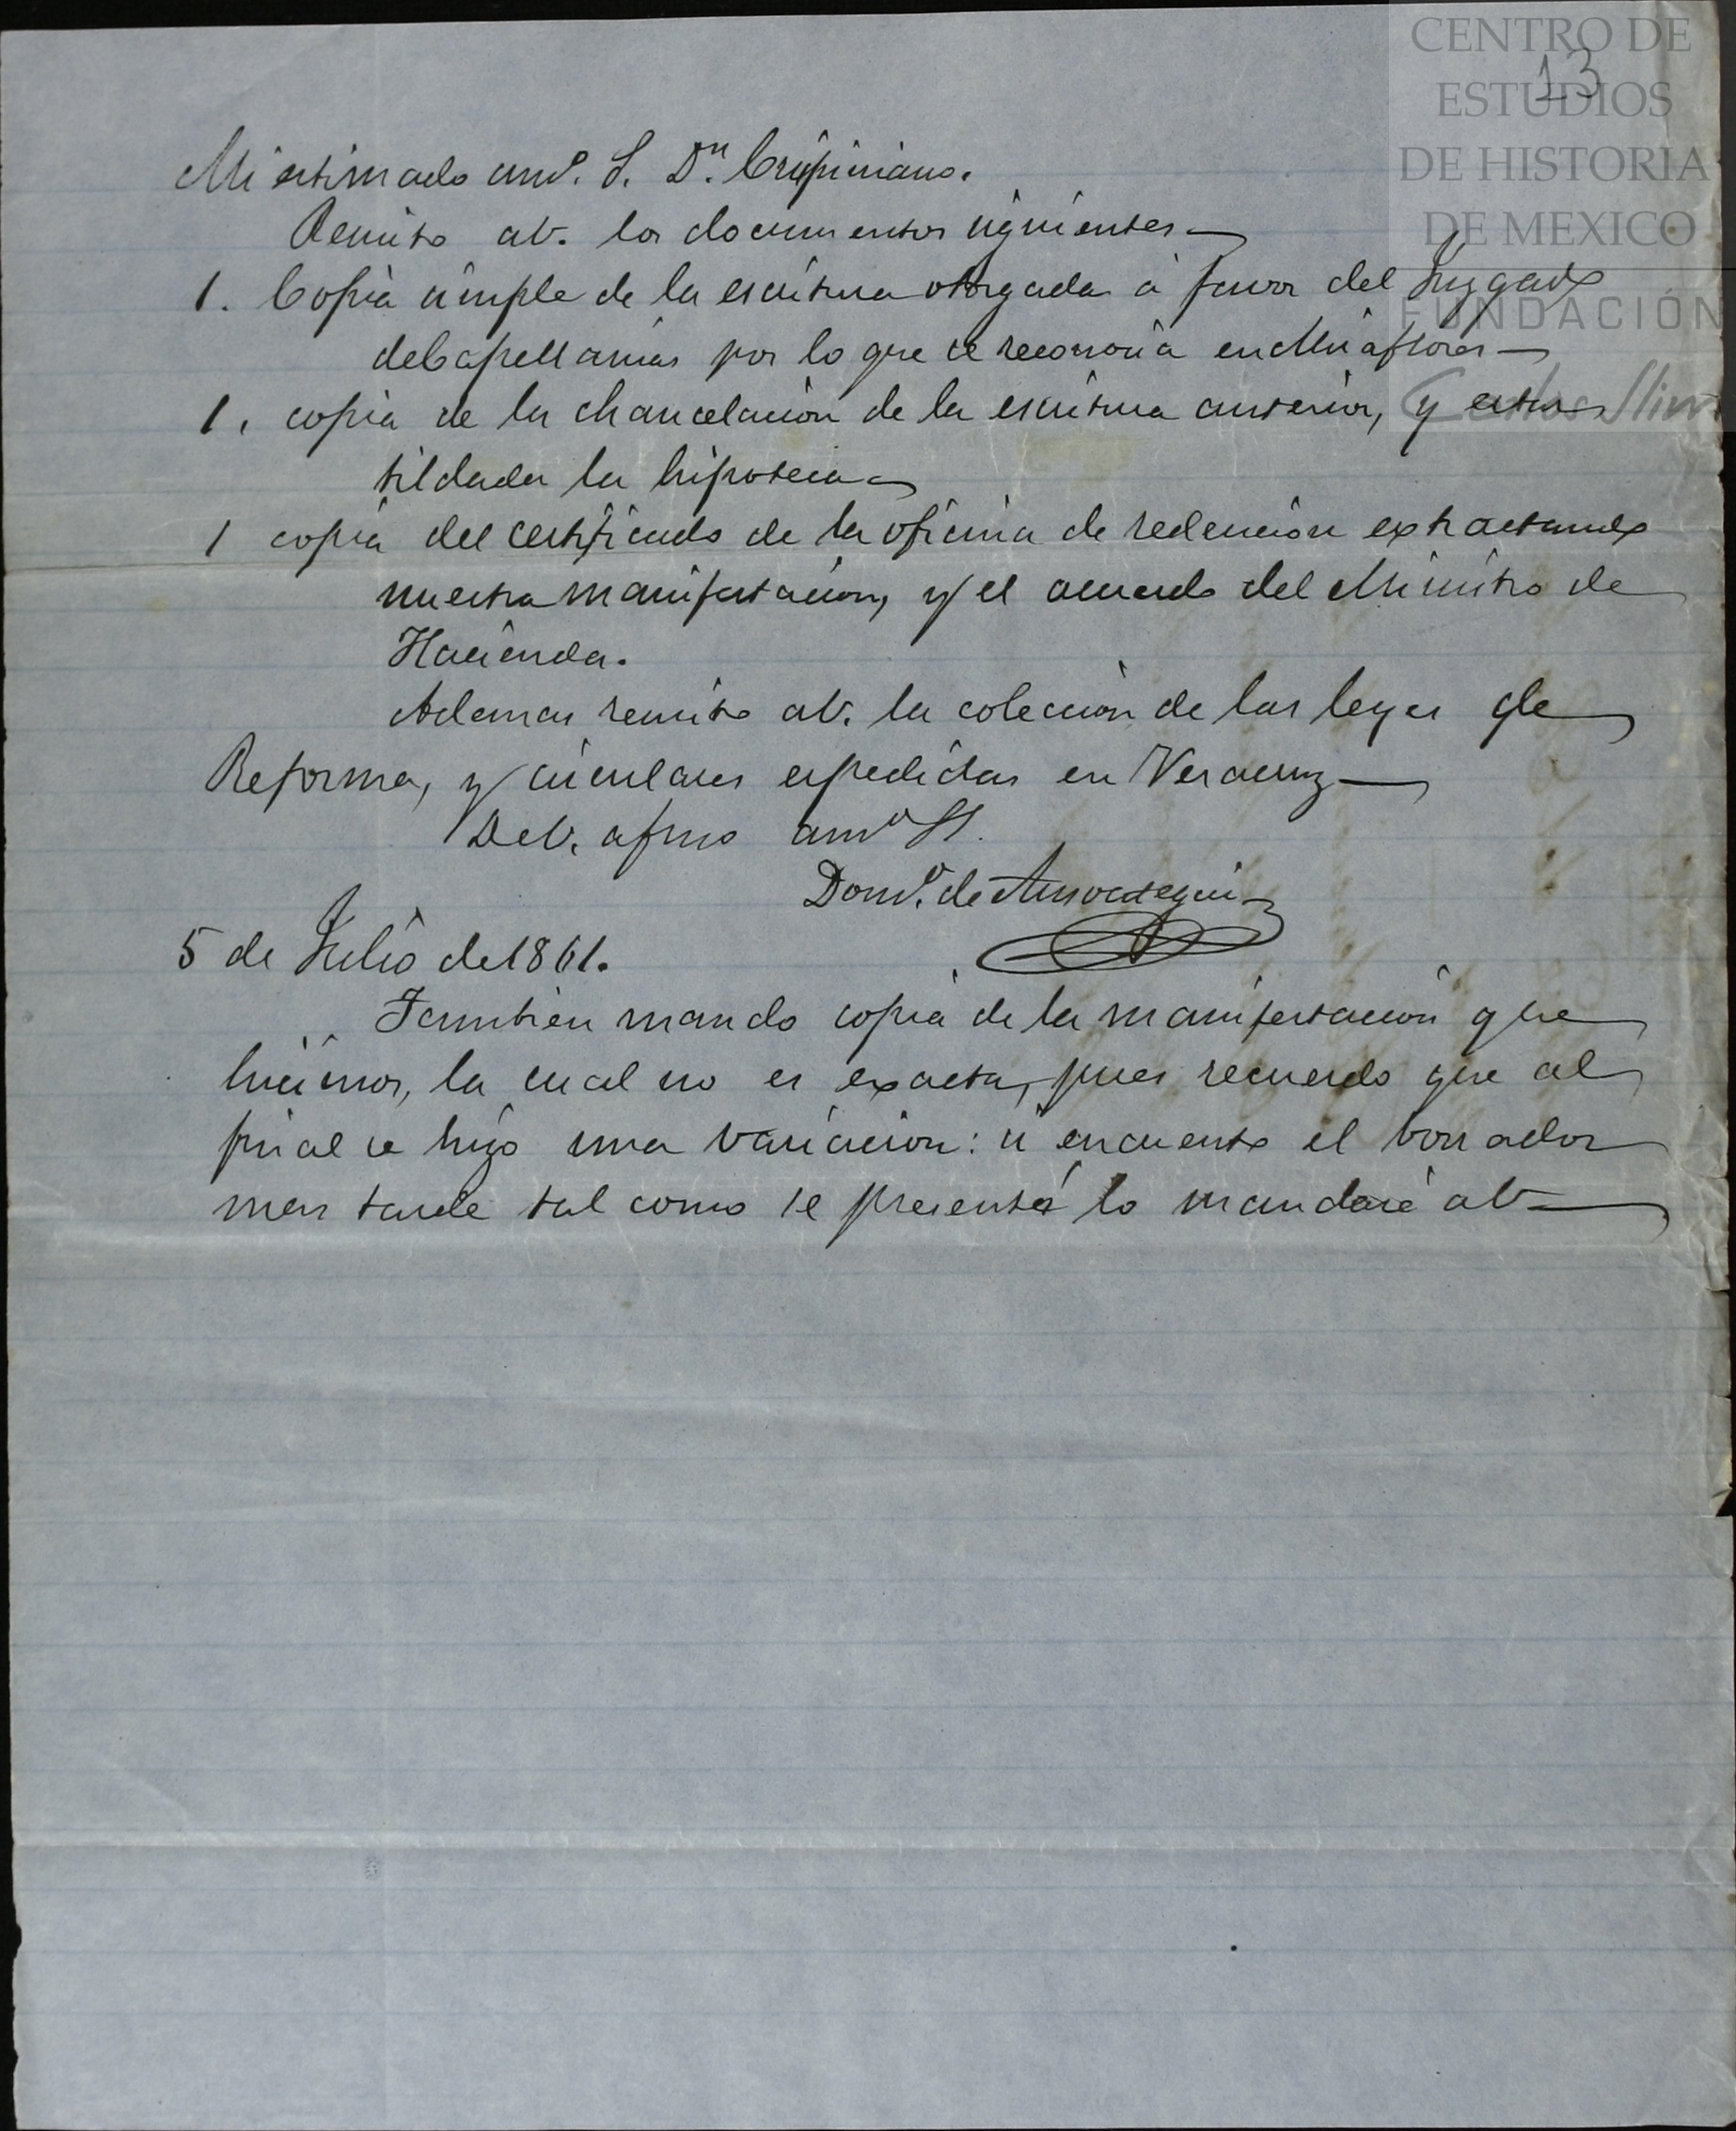 CENTRO DE
ESTUDIOS
DE HISTORIA
DE MEXICO
FUNDACIÓN
Carlos Slim
13
Mi estimado amo. S. Dn. Crispiniano.
Remito aV. los documentos siguientes
1. Copia simple de la escritura otorgada á favor del Juzgado
de Capellanias por lo que se reconocia en Miraflores
1. copia de la chancelacion de la escritura anterior, y estar
tildada la hipoteca
1 copia del certificado de la oficina de redencion extractando
nuestra manifestacion, y el acuerdo del Ministro de
Hacienda.
Ademas remito aV. la coleccion de las leyes de
Reforma, y circulares espedidas en Veracruz
De V. afmo amo
Domo. de Ansoategui
5 de Julio de 1861.
Tambien mando copia de la manifestacion que
hicimos, la cual no es exacta, pues recuerdo que al
final se hizo una variacion: si encuentro el borrador
mas tarde tal como se presentó lo mandaré aV